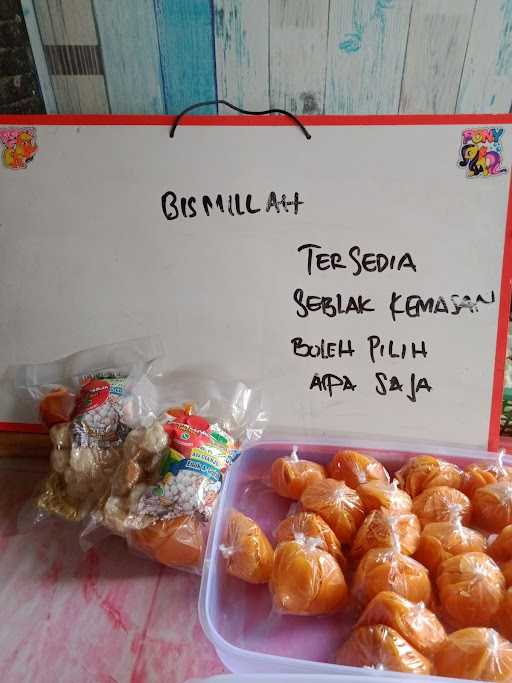 BISMILLAH
TERSEDIA
SEBLAK KEMASAN
BOLEH PILIH
APA SAJA
PONY